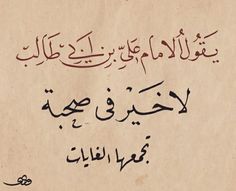 يَقُولُ الامام عَليّ بن اَبي طَالِبْ
لا خَيْر في صحبة
تجمعها الغايات